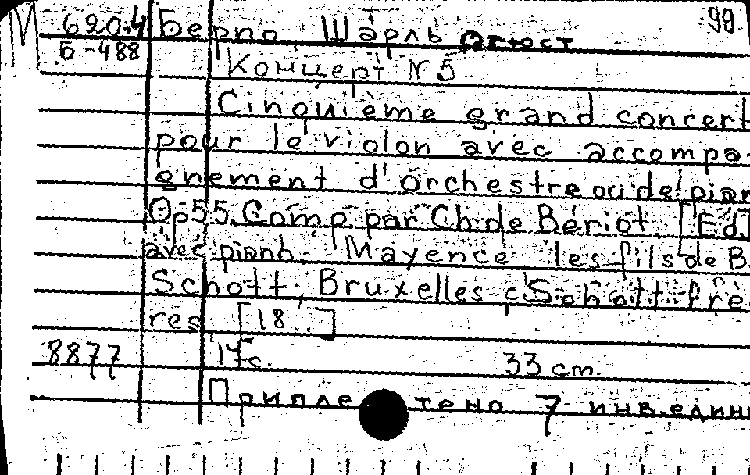 М 620.4 Берио Шарль Огюст 99
Б-488
Концерт N 5
Cinquième grand concert
pour le violon avec accompa-
gnement d'orchestre ou de pian
Op 55. Comp. par Ch. de Bériot. [Ed.]
avec piano. Mayence les fils de B.
Schott; Bruxelles, Schott frè-
res [18..]
8877 17с. 33 cm.
Приплетено 7 инв.един